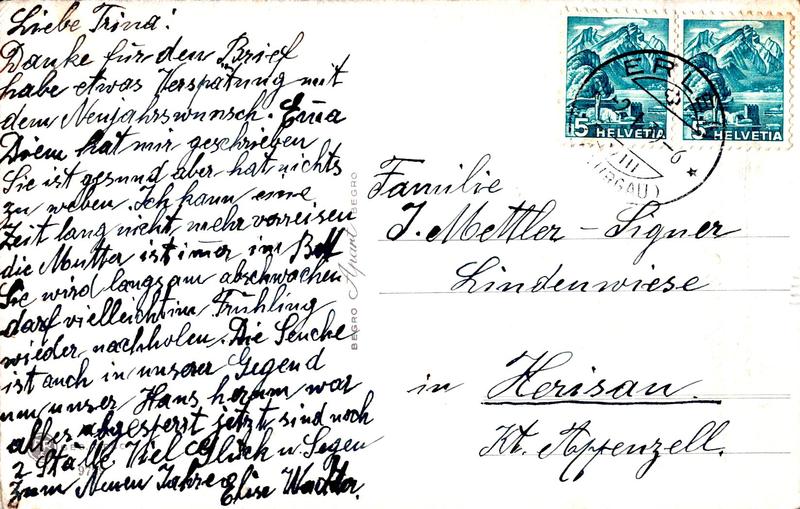 Liebe Trina!
Danke für den Brief
habe etwas Verspätung mit
dem Neujahrswunsch. Emma
Diem hat mir geschrieben
Sie ist gesund aber hat nichts
zu weben. Ich kann eine
Zeit lang nicht mehr verreisen
die Mutter ist immer im Bett
Sie wird langsam abschwachen
darf vielleicht im Frühling
wieder nachholen. Die Seuche
ist auch in unserer Gegend
um unser Haus herum war
alles abgesperrt jetzt sind noch
2 Ställe. Viel Glück u. Segen
zum Neuen Jahre Elise
BEGRO BEGRO
15 HELVETIA
5 HELVETIA
ERLE
VIII
Familie
J. Mettler-Signer
Lindenwiese
in Herisau.
Kt. Appenzell.